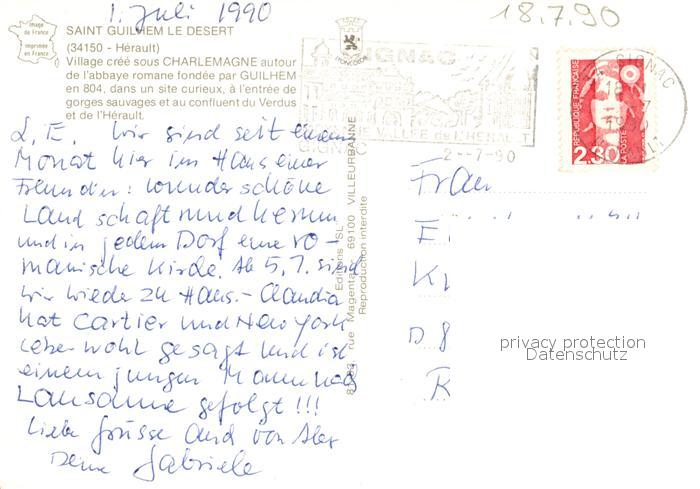 1. Juli 1990
18.7.90
Image de France
imprimée en France
SAINT GUILHEM LE DESERT
(34150 - Hérault)
Village créé sous CHARLEMAGNE autour
de l'abbaye romane fondée par GUILHEM
en 804, dans un site curieux, à l'entrée de
gorges sauvages et au confluent du Verdus
et de l'Hérault.
L.E. Wir sind seit einem
Monat hier im Haus einer
Freundin: wunderschöne
Landschaft rundherum
und in jedem Dorf eine ro-
manische Kirche. Ab 5.7. sind
wir wieder zu Haus. - Claudia
hat Cartier und New York
lebewohl gesagt und ist
einem jungen Mann nach
Lausanne gefolgt!!!
Liebe Grüsse auch von
Deine Gabriele
Editions "SL"
rue Magenta 69100 VILLEURBANNE
Reproduction interdite
GIGNAC
VALLEE de L'HERAULT
2--7-90
GIGNAC
1990
REPUBLIQUE FRANÇAISE
2,30
LA POSTE
Frau
E
K
D 8
R
privacy protection
Datenschutz